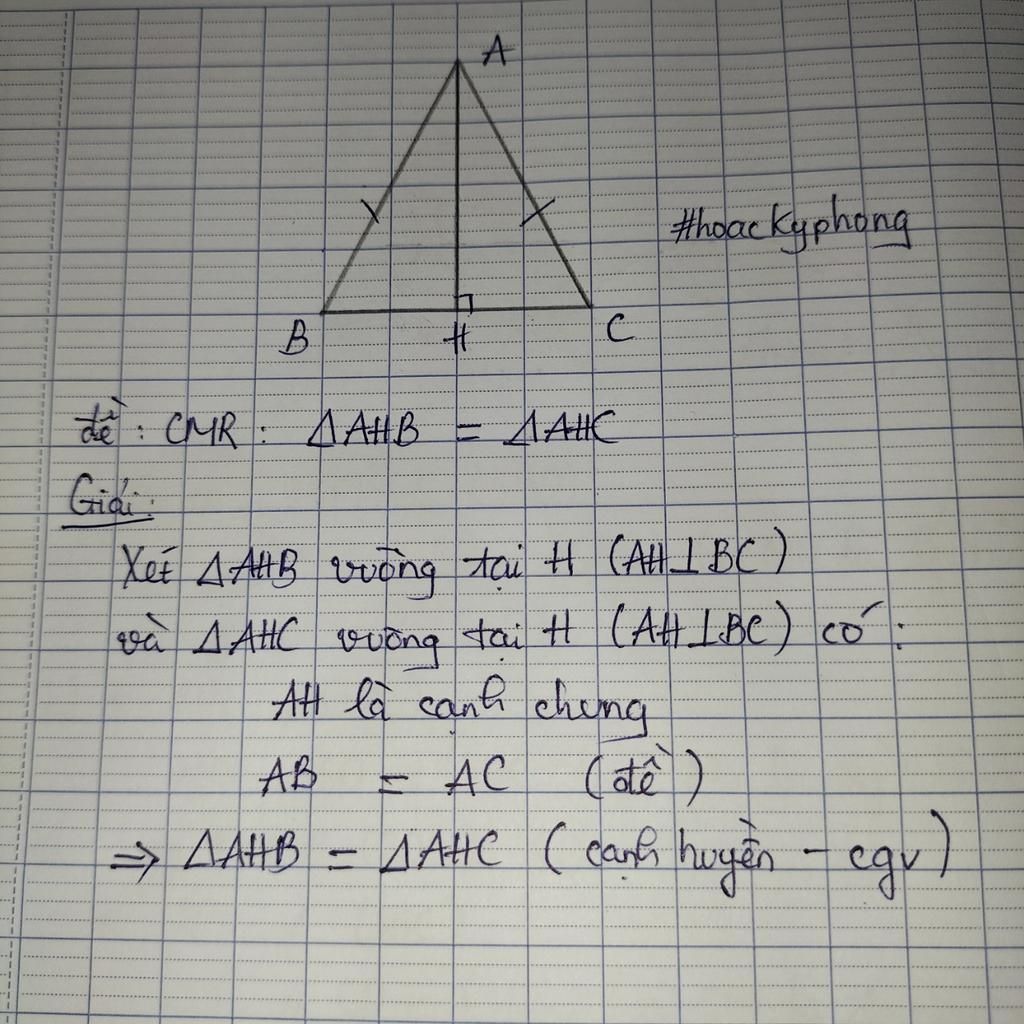 A
#hoackyphong
B
H
C
đề : CMR : ΔAHB = ΔAHC
Giải :
Xét ΔAHB vuông tại H (AH⊥BC)
và ΔAHC vuông tại H (AH⊥BC) có :
AH là cạnh chung
AB = AC (đề)
⇒ ΔAHB = ΔAHC (cạnh huyền - cgv)